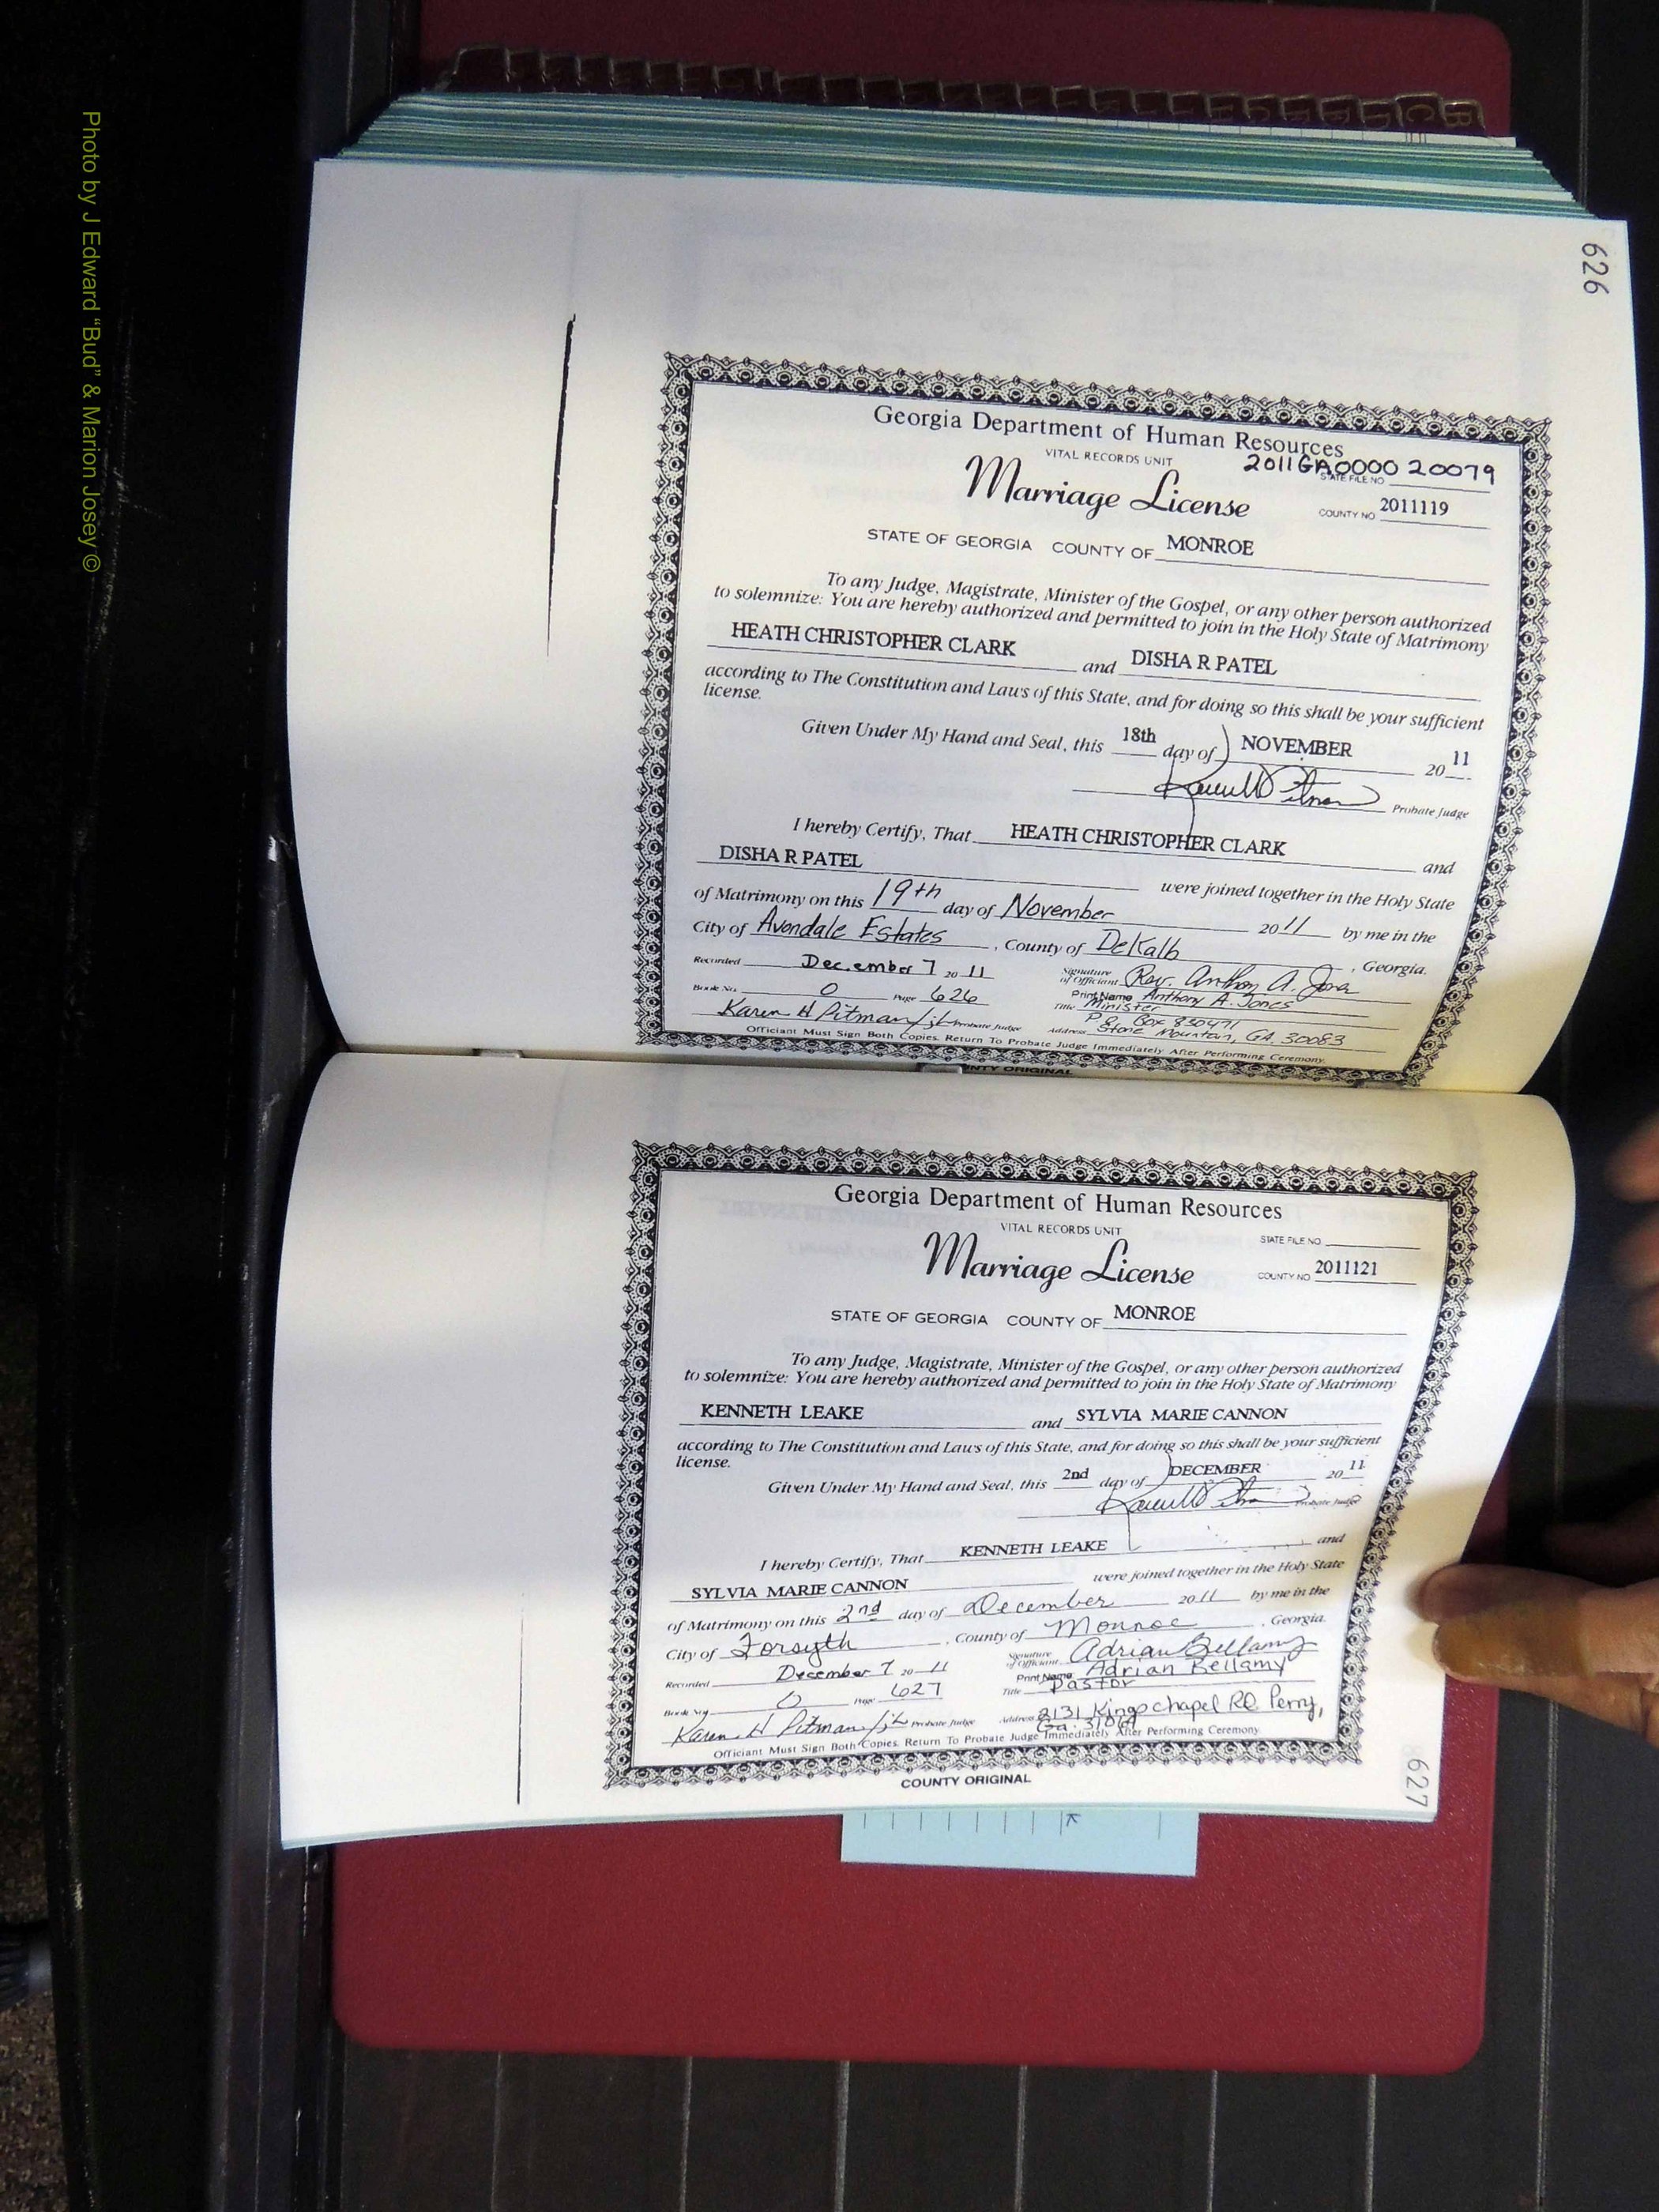 Photo by J Edward “Bud” & Marion Josey ©
626
Georgia Department of Human Resources
VITAL RECORDS UNIT
2011GA0000 20079
STATE FILE NO
Marriage License
COUNTY NO 2011119
STATE OF GEORGIA COUNTY OF MONROE
To any Judge, Magistrate, Minister of the Gospel, or any other person authorized
to solemnize: You are hereby authorized and permitted to join in the Holy State of Matrimony
HEATH CHRISTOPHER CLARK and DISHA R PATEL
according to The Constitution and Laws of this State, and for doing so this shall be your sufficient
license.
Given Under My Hand and Seal, this 18th day of NOVEMBER 20 11
Probate Judge
I hereby Certify, That HEATH CHRISTOPHER CLARK and
DISHA R PATEL were joined together in the Holy State
of Matrimony on this 19th day of November 20 11 by me in the
City of Avondale Estates, County of DeKalb, Georgia.
Recorded December 7 20 11 Signature of Officiant Rev. Anthony A. Jones
Print Name Anthony A. Jones
Book No. O Page 626 Title Minister
Karen H Pitman/jL Probate Judge Address P O Box 830471
Stone Mountain, GA. 30083
Officiant Must Sign Both Copies. Return To Probate Judge Immediately After Performing Ceremony.
NTY ORIGINAL
Georgia Department of Human Resources
VITAL RECORDS UNIT
STATE FILE NO
Marriage License
COUNTY NO 2011121
STATE OF GEORGIA COUNTY OF MONROE
To any Judge, Magistrate, Minister of the Gospel, or any other person authorized
to solemnize: You are hereby authorized and permitted to join in the Holy State of Matrimony
KENNETH LEAKE and SYLVIA MARIE CANNON
according to The Constitution and Laws of this State, and for doing so this shall be your sufficient
license.
Given Under My Hand and Seal, this 2nd day of DECEMBER 20 11
Probate Judge
I hereby Certify, That KENNETH LEAKE and
SYLVIA MARIE CANNON were joined together in the Holy State
of Matrimony on this 2nd day of December 20 11 by me in the
City of Forsyth, County of Monroe, Georgia.
Recorded December 7 20 11 Signature of Officiant Adrian Bellamy
Print Name Adrian Bellamy
Book No. O Page 627 Title Pastor
Karen H Pitman/jL Probate Judge Address 2131 Kings chapel Rd Perry,
Ga.
Officiant Must Sign Both Copies. Return To Probate Judge Immediately After Performing Ceremony
COUNTY ORIGINAL
627